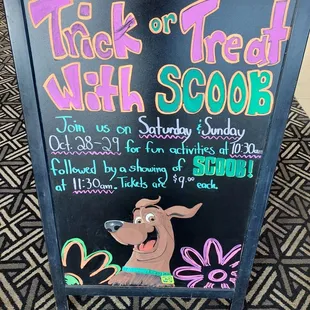 Trick or Treat
With SCOOB
Join us on Saturday & Sunday
Oct. 28-29 for fun activities at 10:30am
followed by a showing of SCOOB!
at 11:30am. Tickets are $9.00 each.